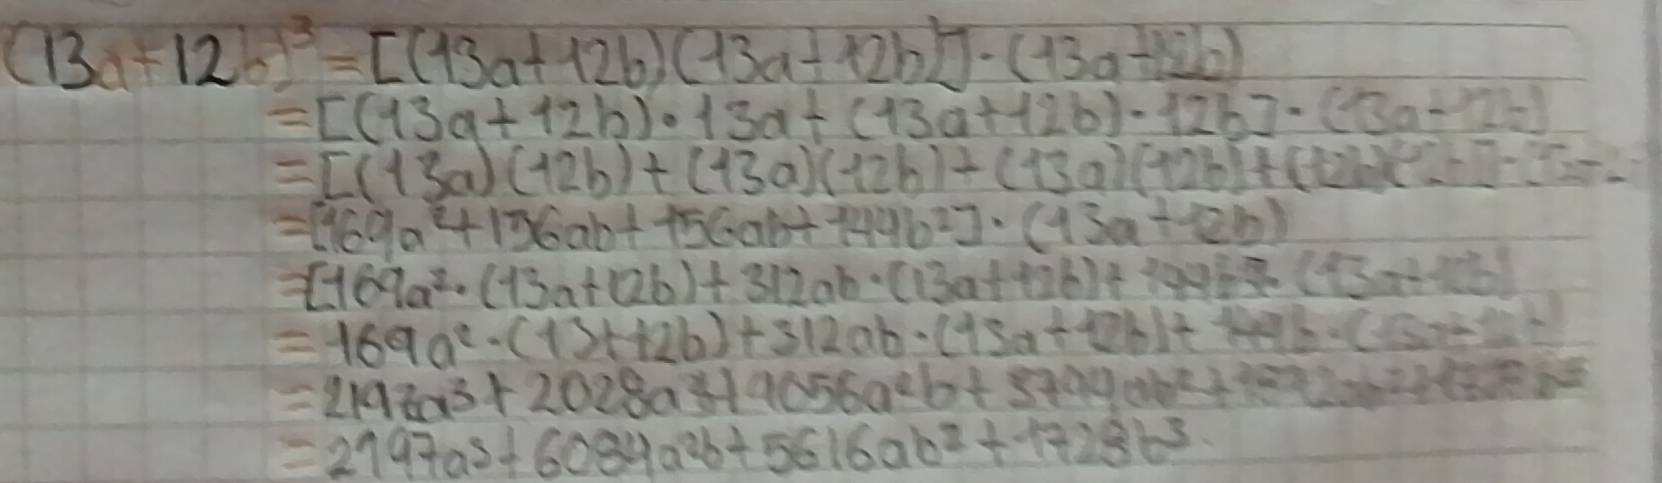 (13a+12b)³ = [(13a+12b)(13a+12b)]·(13a+12b)
= [(13a+12b)·13a+(13a+12b)·12b]·(13a+12b)
= [(13a)(12b)+(13a)(12b)+(13a)(12b)+(12b)
= [169a²+156ab+156ab+144b²]·(13a+12b)
= [169a²·(13a+12b)+312ab·(13a+12b)+144b²·(13a+12b)
= 169a²·(13+12b)+312ab·(13a+12b)+
= 2197a³+2028a²+4056a²b+3744ab²+
= 2197a³+6084a²b+5616ab²+1728b³.